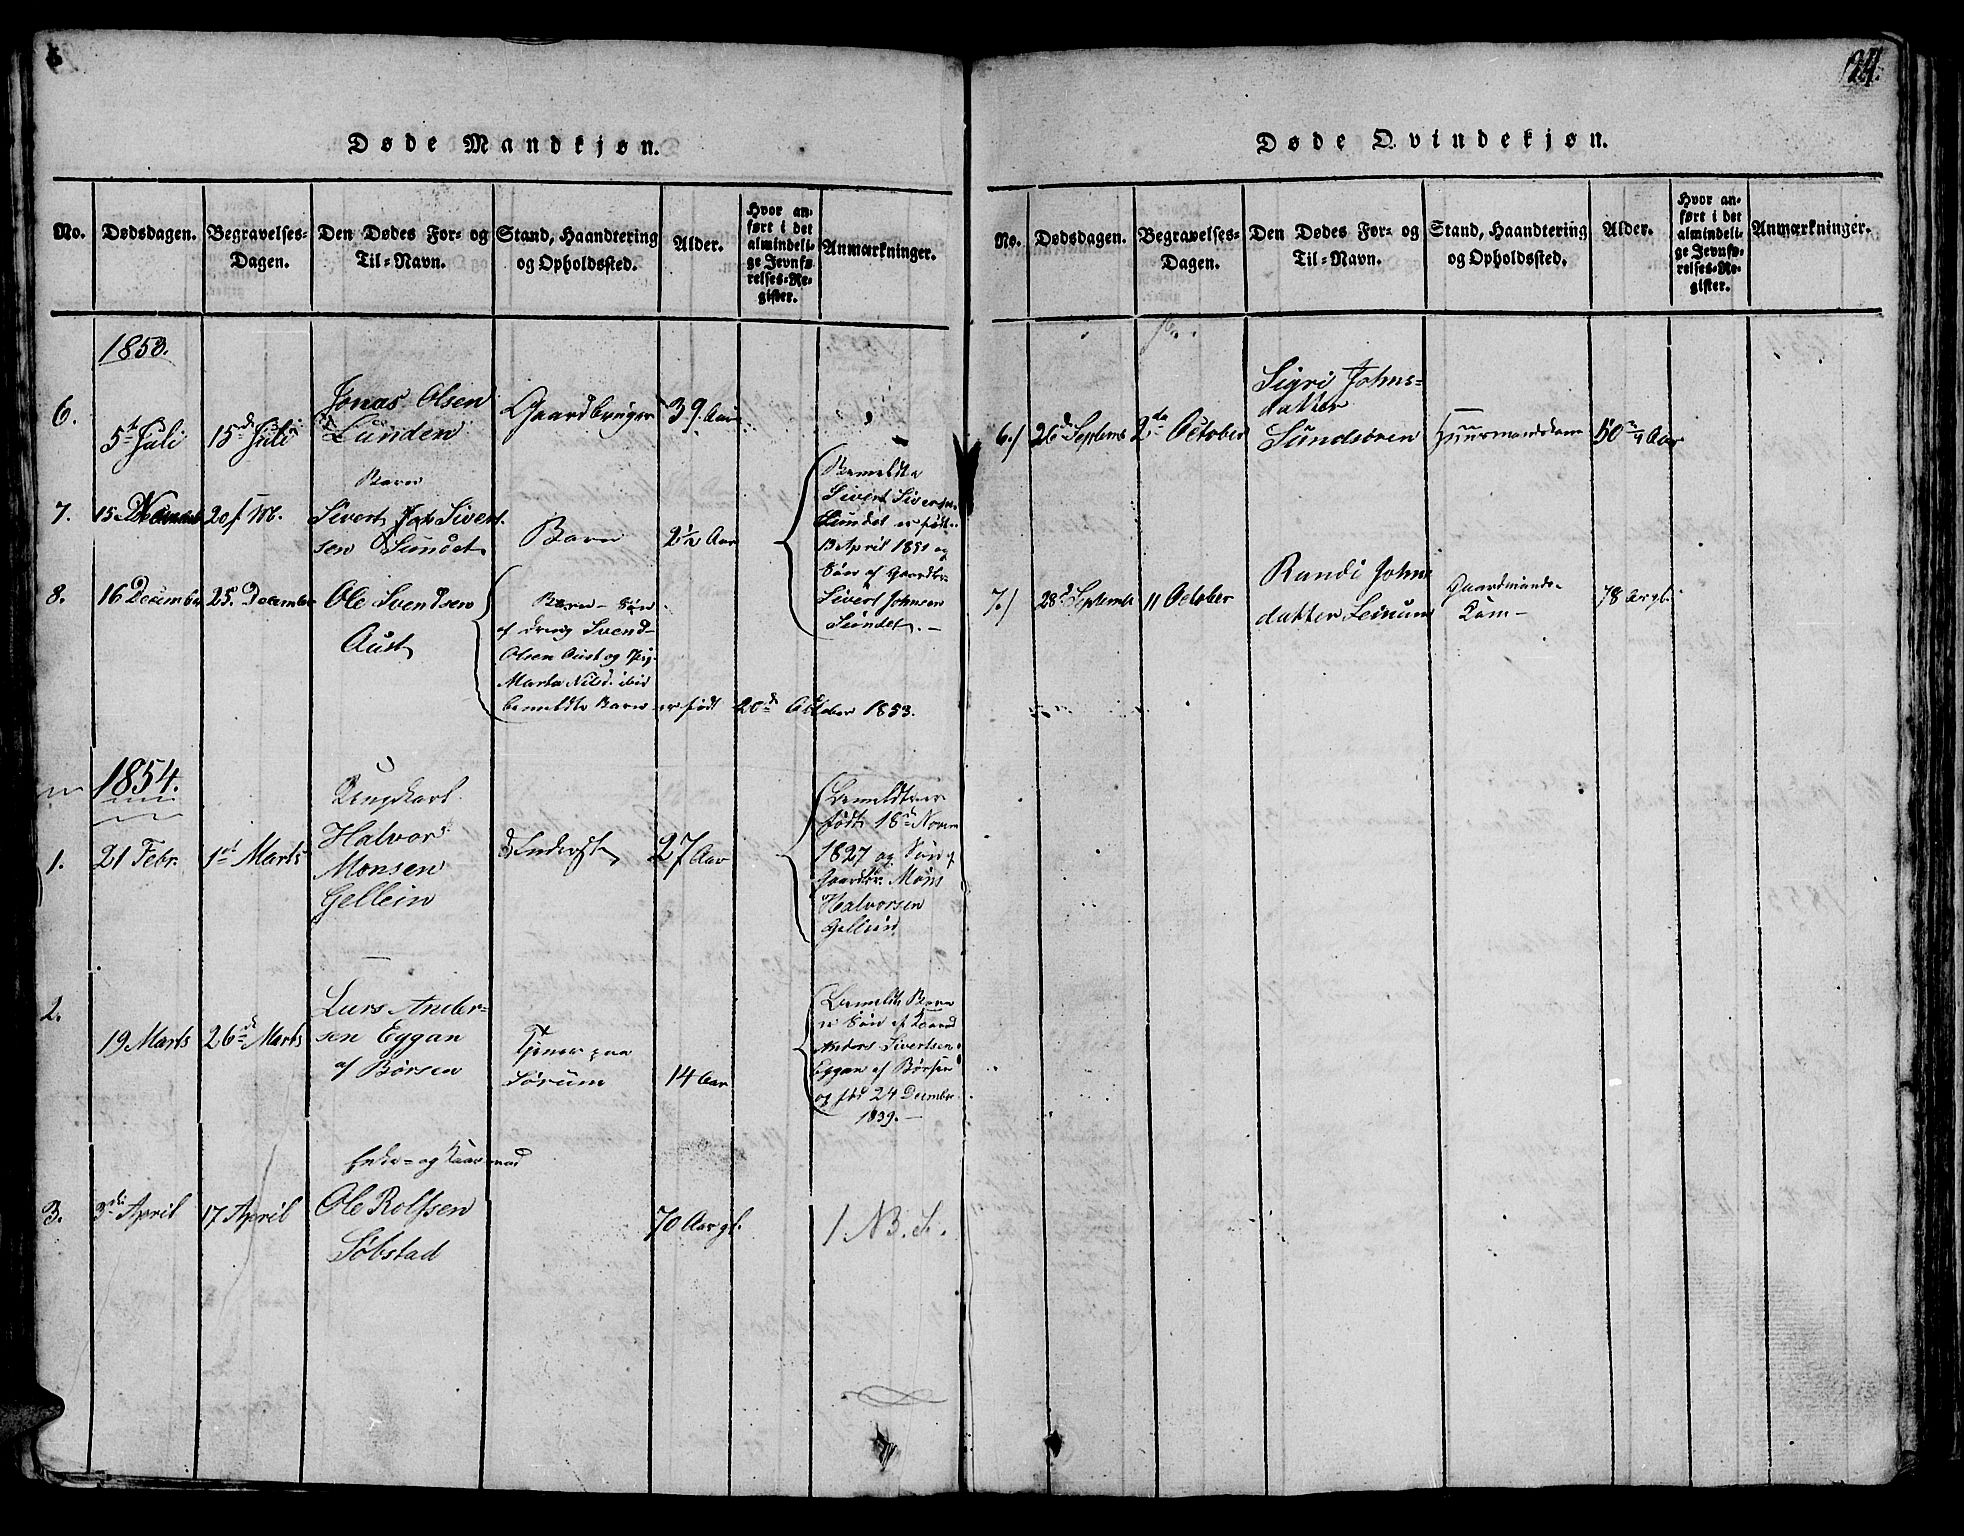 Døde Mandkjøn.
No. Dødsdagen. Begravelses-Dagen. Den Dødes For- og Til-Navn. Stand, Haandtering og Opholdssted. Alder. Hvor anført i det almindelige Jevnførelses-Register. Anmærkninger.
1853.
6. 5te Juli 15d Juli Jonas Olsen Lunden Gaardbruger 39 Aar
7. 20 M. Barn
Sivert Sivert-
sen Sundet Barn 2½ Aar
Bemeldte
Sivert Sivertsen
Sundet er født
April 1851 og
Søn af Gaardbr.
Sivert Johnsen
Sundet. —
8. 16 December 25. December Ole Svendsen
Aust
Barn - Søn
af Svend
Olsen Aust og
Marta Nilsd. ibid
bemeldte Barn er født 20d October 1853.
1854.
1. 21 Febr. 1st Marts Ungkarl
Halvor
Monsen
Gellein
27 Aar
Bemeldte er
født 18d Novem
1827 og Søn af
Gaardbr. Mons
Halvorsen
Gellein
2. 19 Marts 26d Marts Lars Ander-
sen Eggan
af Børsen
Tjener paa
Sørum
14 Aar
Bemeldte Barn
er Søn af
Anders Sivertsen
Eggan af Børsen
og fød 24 Decembr
1839. —
3. 3die April 17 April
Enke- og
Ole Rolfsen
Søbstad
70 Aar gl.
1 NB.
Døde Qvindekjøn.
24.
No. Dødsdagen. Begravelses-Dagen. Den Dødes For- og Til-Navn. Stand, Haandtering og Opholdssted. Alder. Hvor anført i det almindelige Jevnførelses-Register. Anmærkninger.
6.) 26d Septemb 2de October Sigri Johns-
datter
Sundsøren
Huusmandskone Aar
7.) 28d Septemb 11 October Randi Johns
datter Leinum
Gaardmands-
Kone —
78 Aar gl.